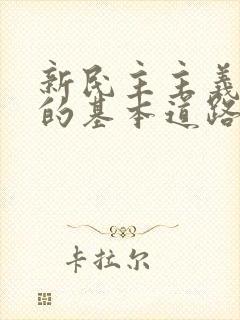 新民主主义
的基本道路
卡拉尔